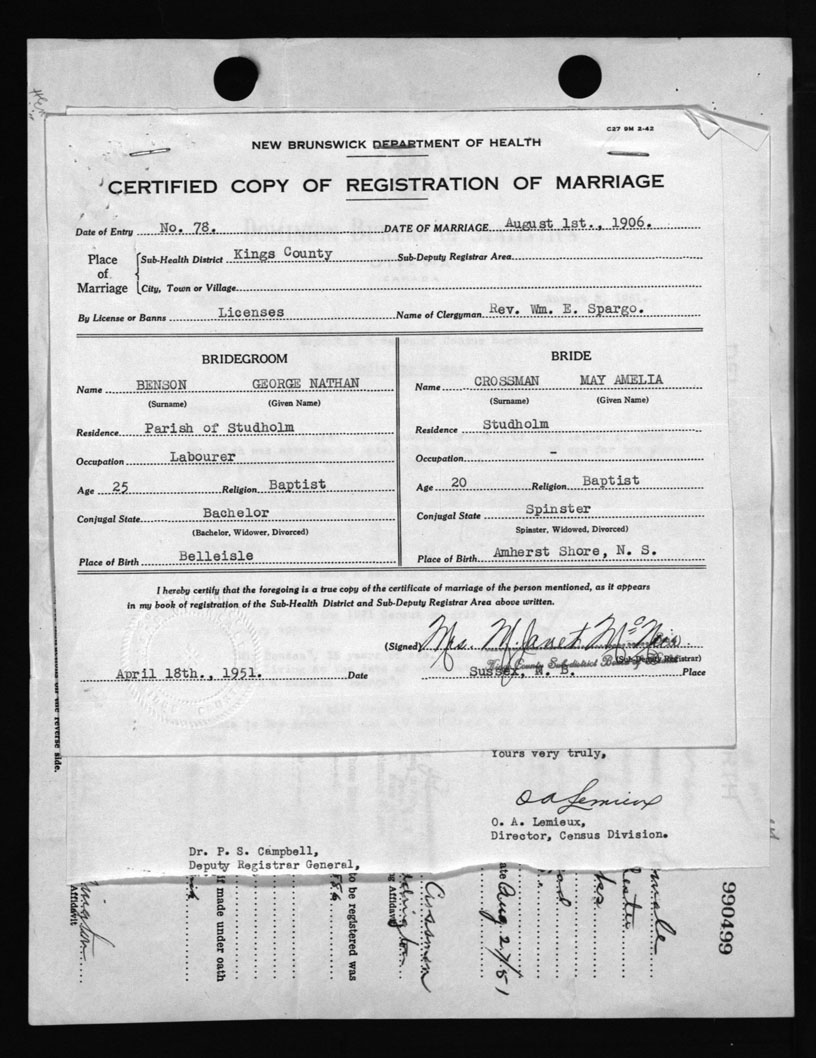 C27 9M 2-42
NEW BRUNSWICK DEPARTMENT OF HEALTH
CERTIFIED COPY OF REGISTRATION OF MARRIAGE
Date of Entry No. 78. DATE OF MARRIAGE August 1st., 1906.
Place of Marriage
Sub-Health District Kings County Sub-Deputy Registrar Area
City, Town or Village
By License or Banns Licenses Name of Clergyman Rev. Wm. E. Spargo.
BRIDEGROOM
Name BENSON GEORGE NATHAN
(Surname) (Given Name)
Residence Parish of Studholm
Occupation Labourer
Age 25 Religion Baptist
Conjugal State Bachelor
(Bachelor, Widower, Divorced)
Place of Birth Belleisle
BRIDE
Name CROSSMAN MAY AMELIA
(Surname) (Given Name)
Residence Studholm
Occupation -
Age 20 Religion Baptist
Conjugal State Spinster
Spinster, Widowed, Divorced)
Place of Birth Amherst Shore, N. S.
I hereby certify that the foregoing is a true copy of the certificate of marriage of the person mentioned, as it appears
in my book of registration of the Sub-Health District and Sub-Deputy Registrar Area above written.
(Signed) Mrs. M. Janet
(Sub-Deputy Registrar)
April 18th., 1951. Date Sussex, N. B. Place
on the reverse side.
Yours very truly,
O A Lemieux
O. A. Lemieux,
Director, Census Division.
Dr. P. S. Campbell,
Deputy Registrar General,
Affidavit
if made under oath
to be registered was
Affidavit
Aug 27/51
male
990499